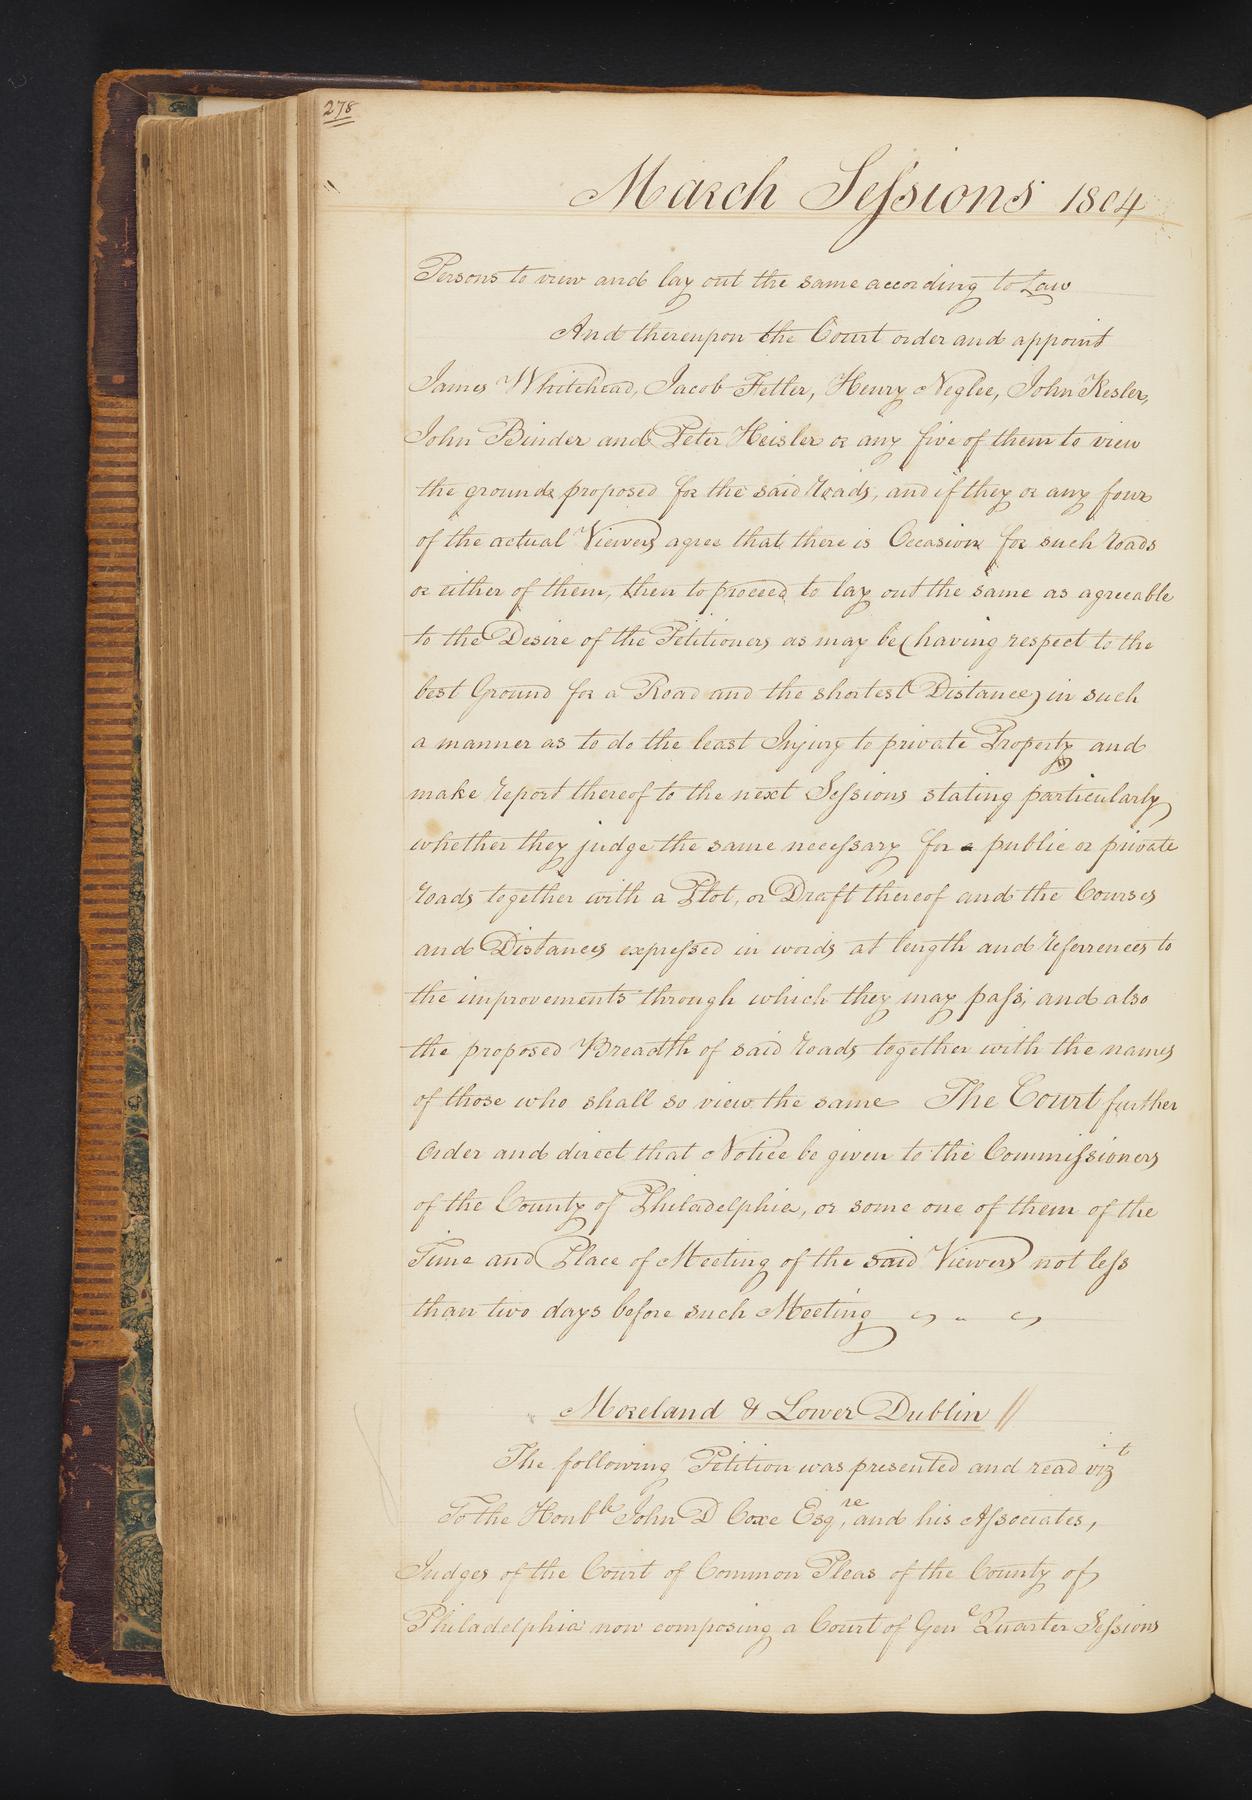 278
March Sessions 1804
Persons to view and lay out the same according to Law
And thereupon the Court order and appoint
James Whitehead, Jacob Fetter, Henry Neglee, John Kesler,
John Binder and Peter Heisler or any five of them to view
the grounds proposed for the said roads, and if they or any four
of the actual Viewers agree that there is Occasion for such roads
or either of them, then to proceed to lay out the same as agreeable
to the Desire of the Petitioners as may be (having respect to the
best Ground for a Road and the shortest Distance) in such
a manner as to do the least Injury to private Property and
make report thereof to the next Sessions stating particularly
whether they judge the same necessary for a public or private
roads together with a Plot, or Draft thereof and the Courses
and Distances expressed in words at length and referrences to
the improvements through which they may pass, and also
the proposed Breadth of said roads together with the names
of those who shall so view the same The Court further
order and direct that Notice be given to the Commissioners
of the County of Philadelphia, or some one of them of the
Time and Place of Meeting of the said Viewers not less
than two days before such Meeting
Moreland & Lower Dublin //
The following Petition was presented and read vizt
To the Honble John D Coxe Esqre, and his Associates,
Judges of the Court of Common Pleas of the County of
Philadelphia now composing a Court of Genl Quarter Sessions